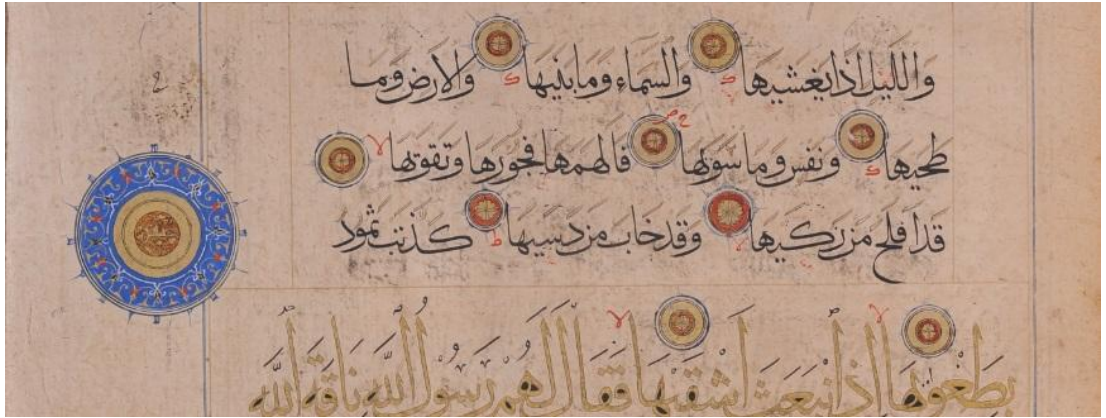 واليل اذا يغشيها والسماء وما بنيها والارض وما
طحيها ونفس وما سويها فالهمها فجورها وتقويها
قد افلح من زكيها وقد خاب من دسيها كذبت ثمود
بطغويها اذ انبعث اشقيها فقال لهم رسول الله ناقة الله